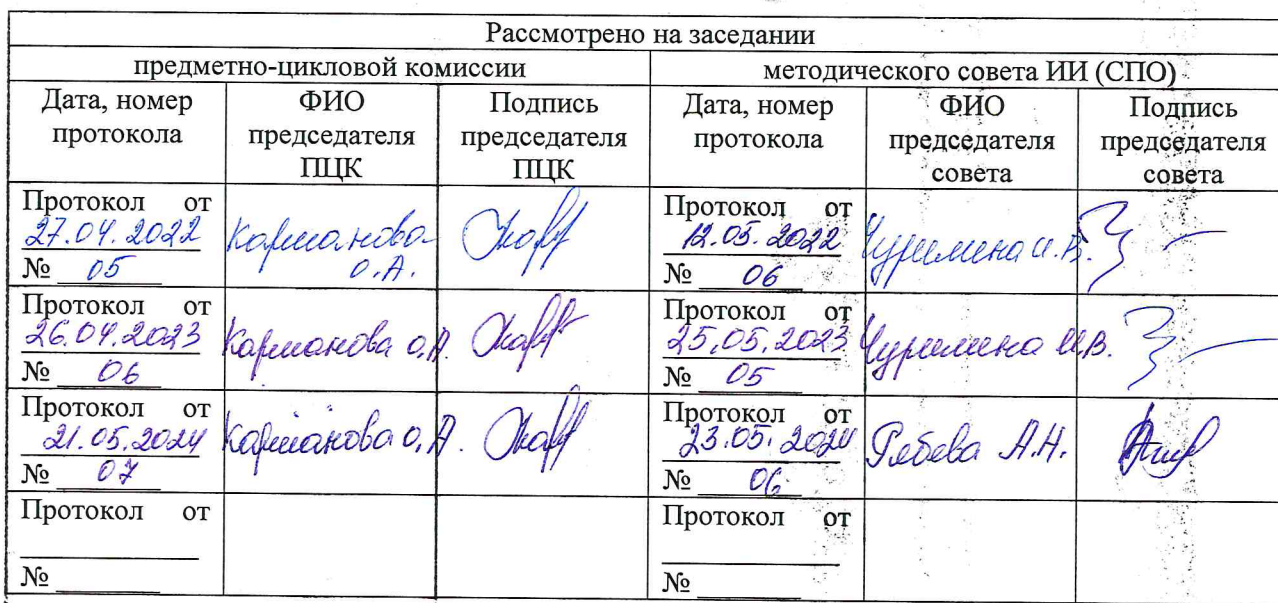 Рассмотрено на заседании
предметно-цикловой комиссии
методического совета ИИ (СПО)
Дата, номер протокола
ФИО председателя ПЦК
Подпись председателя ПЦК
Дата, номер протокола
ФИО председателя совета
Подпись председателя совета
Протокол от
27.04.2022
№ 05
Карманова
О.А.
Протокол от
12.05.2022
№ 06
Чуримена И.В.
Протокол от
26.04.2023
№ 06
Карманова О.А.
Протокол от
25.05.2023
№ 05
Чуримена И.В.
Протокол от
21.05.2024
№ 07
Карманова О.А.
Протокол от
23.05.2024
№ 06
А.Н.
Протокол от
№
Протокол от
№